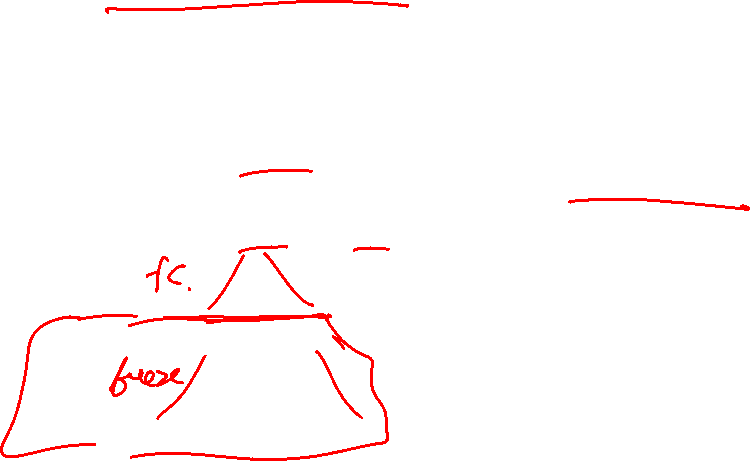 fc.
freeze